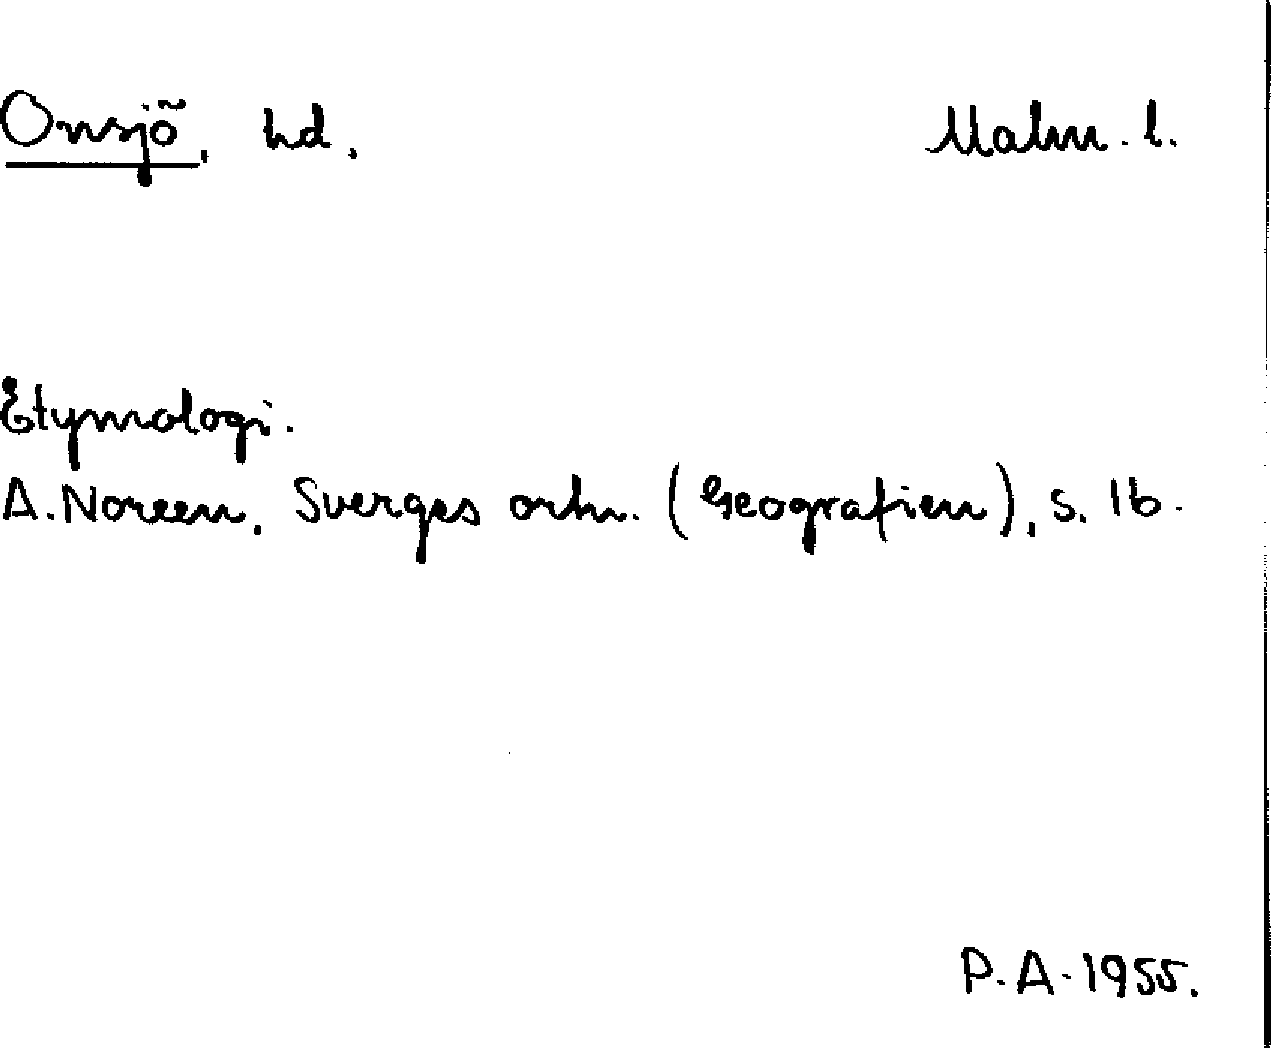 Onsjö, hd. Malm. l.
Etymologi.
A. Noreen, Sverges ortn. (Geografien), s. 16.
P. A. 1955.